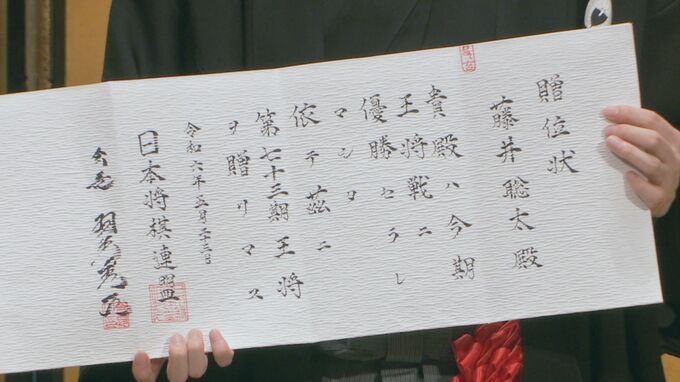 贈位状
藤井聡太殿
貴殿ハ今期
王将戦ニ
優勝セラレ
マシタ
依テ茲ニ
第七十三期王将
ヲ贈リマス
令和六年五月二十三日
日本将棋連盟
会長 羽生善治